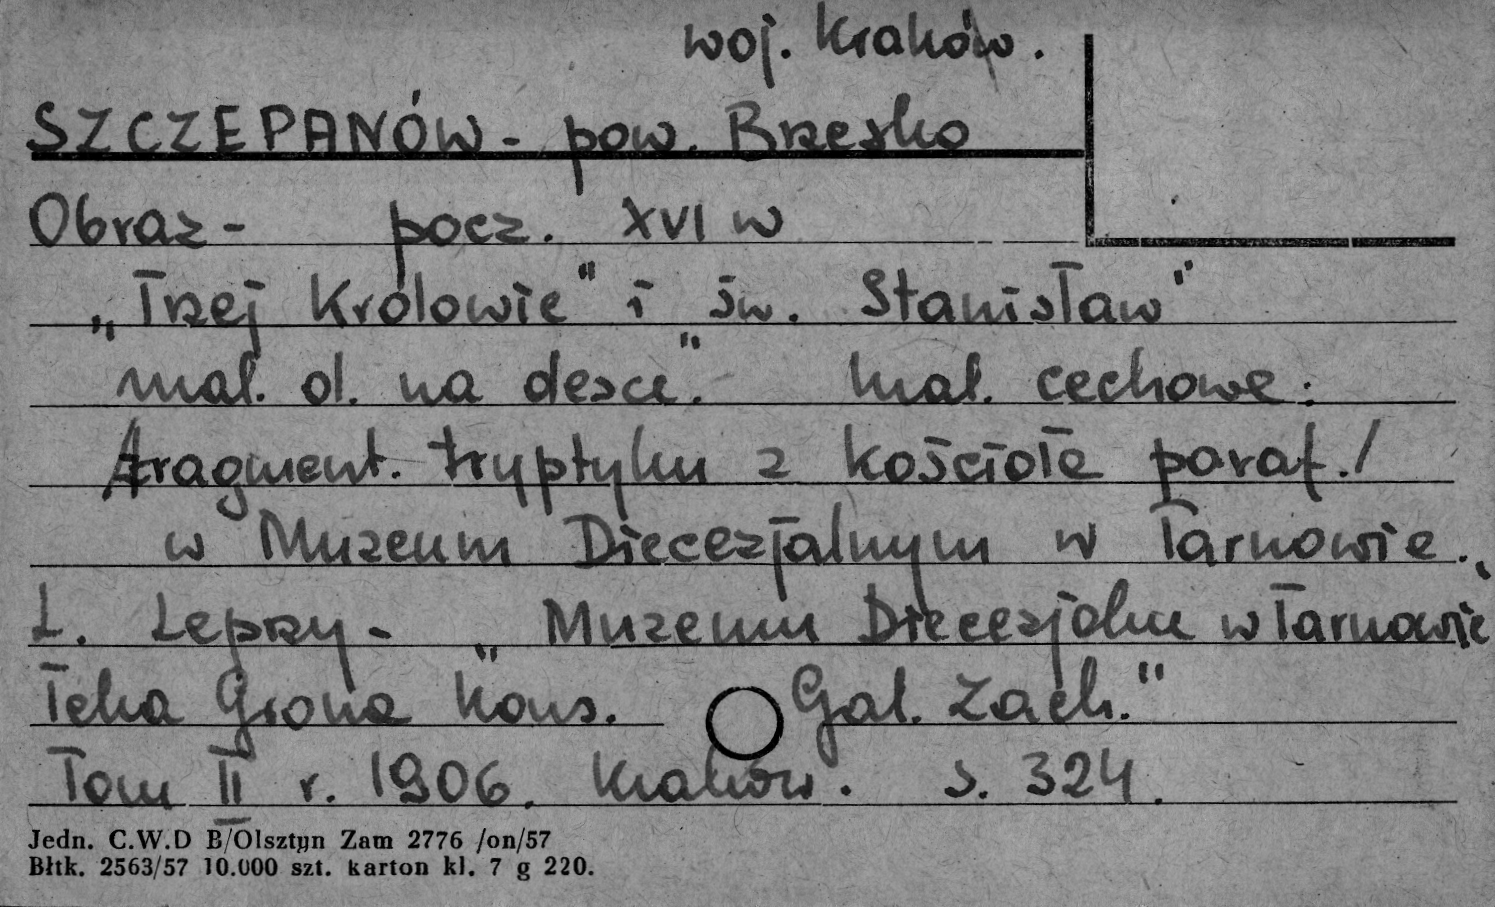 woj. Kraków.
SZCZEPANÓW - pow. Brzesko
Obraz - pocz. XVI w
„Trzej Królowie" i św. Stanisław"
mal. ol. na desce". mal. cechowe.
fragment. tryptyku z kościoła paraf./
w Muzeum Diecezjalnym w Tarnowie.
L. Lepszy - „Muzeum Diecezjalne w Tarnowie"
Teka Grona Kons. Gal. Zach."
Tom II r. 1906. Kraków. s. 324.
Jedn. C.W.D B/Olsztyn Zam 2776 /on/57
Błtk. 2563/57 10.000 szt. karton kl. 7 g 220.